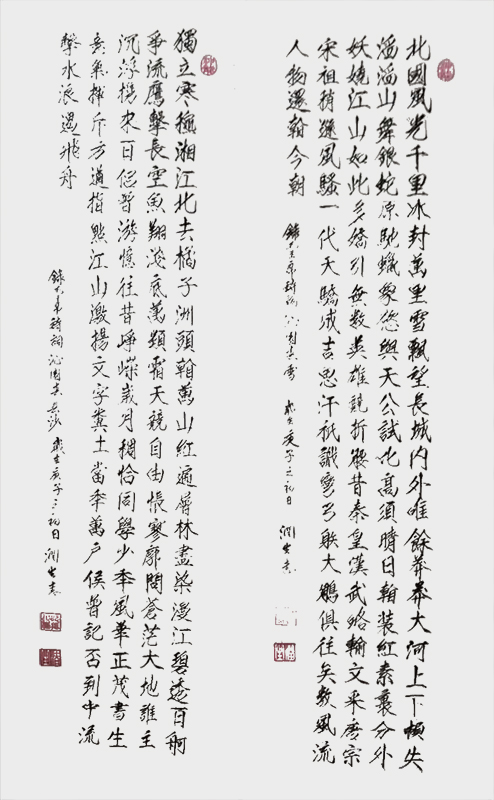 北國風光千里冰封萬里雪飄望長城內外唯餘莽莽大河上下頓失
滔滔山舞銀蛇原馳蠟象欲與天公試比高須晴日看裝紅素裹分外
妖嬈江山如此多嬌引無數英雄競折腰昔秦皇漢武略輸文采唐宗
宋祖稍遜風騷一代天驕成吉思汗祇識彎弓射大鵰俱往矣數風流
人物還看今朝
錄毛主席詩詞沁園春雪 歲在庚子之初日 潤生書
獨立寒秋湘江北去橘子洲頭看萬山紅遍層林盡染漫江碧透百舸
爭流鷹擊長空魚翔淺底萬類霜天競自由悵寥廓問蒼茫大地誰主
沉浮攜來百侶曾游憶往昔崢嶸歲月稠恰同學少年風華正茂書生
意氣揮斥方遒指點江山激揚文字糞土當年萬戶侯曾記否到中流
擊水浪遏飛舟
錄毛主席詩詞沁園春長沙 歲在庚子之初日 潤生書